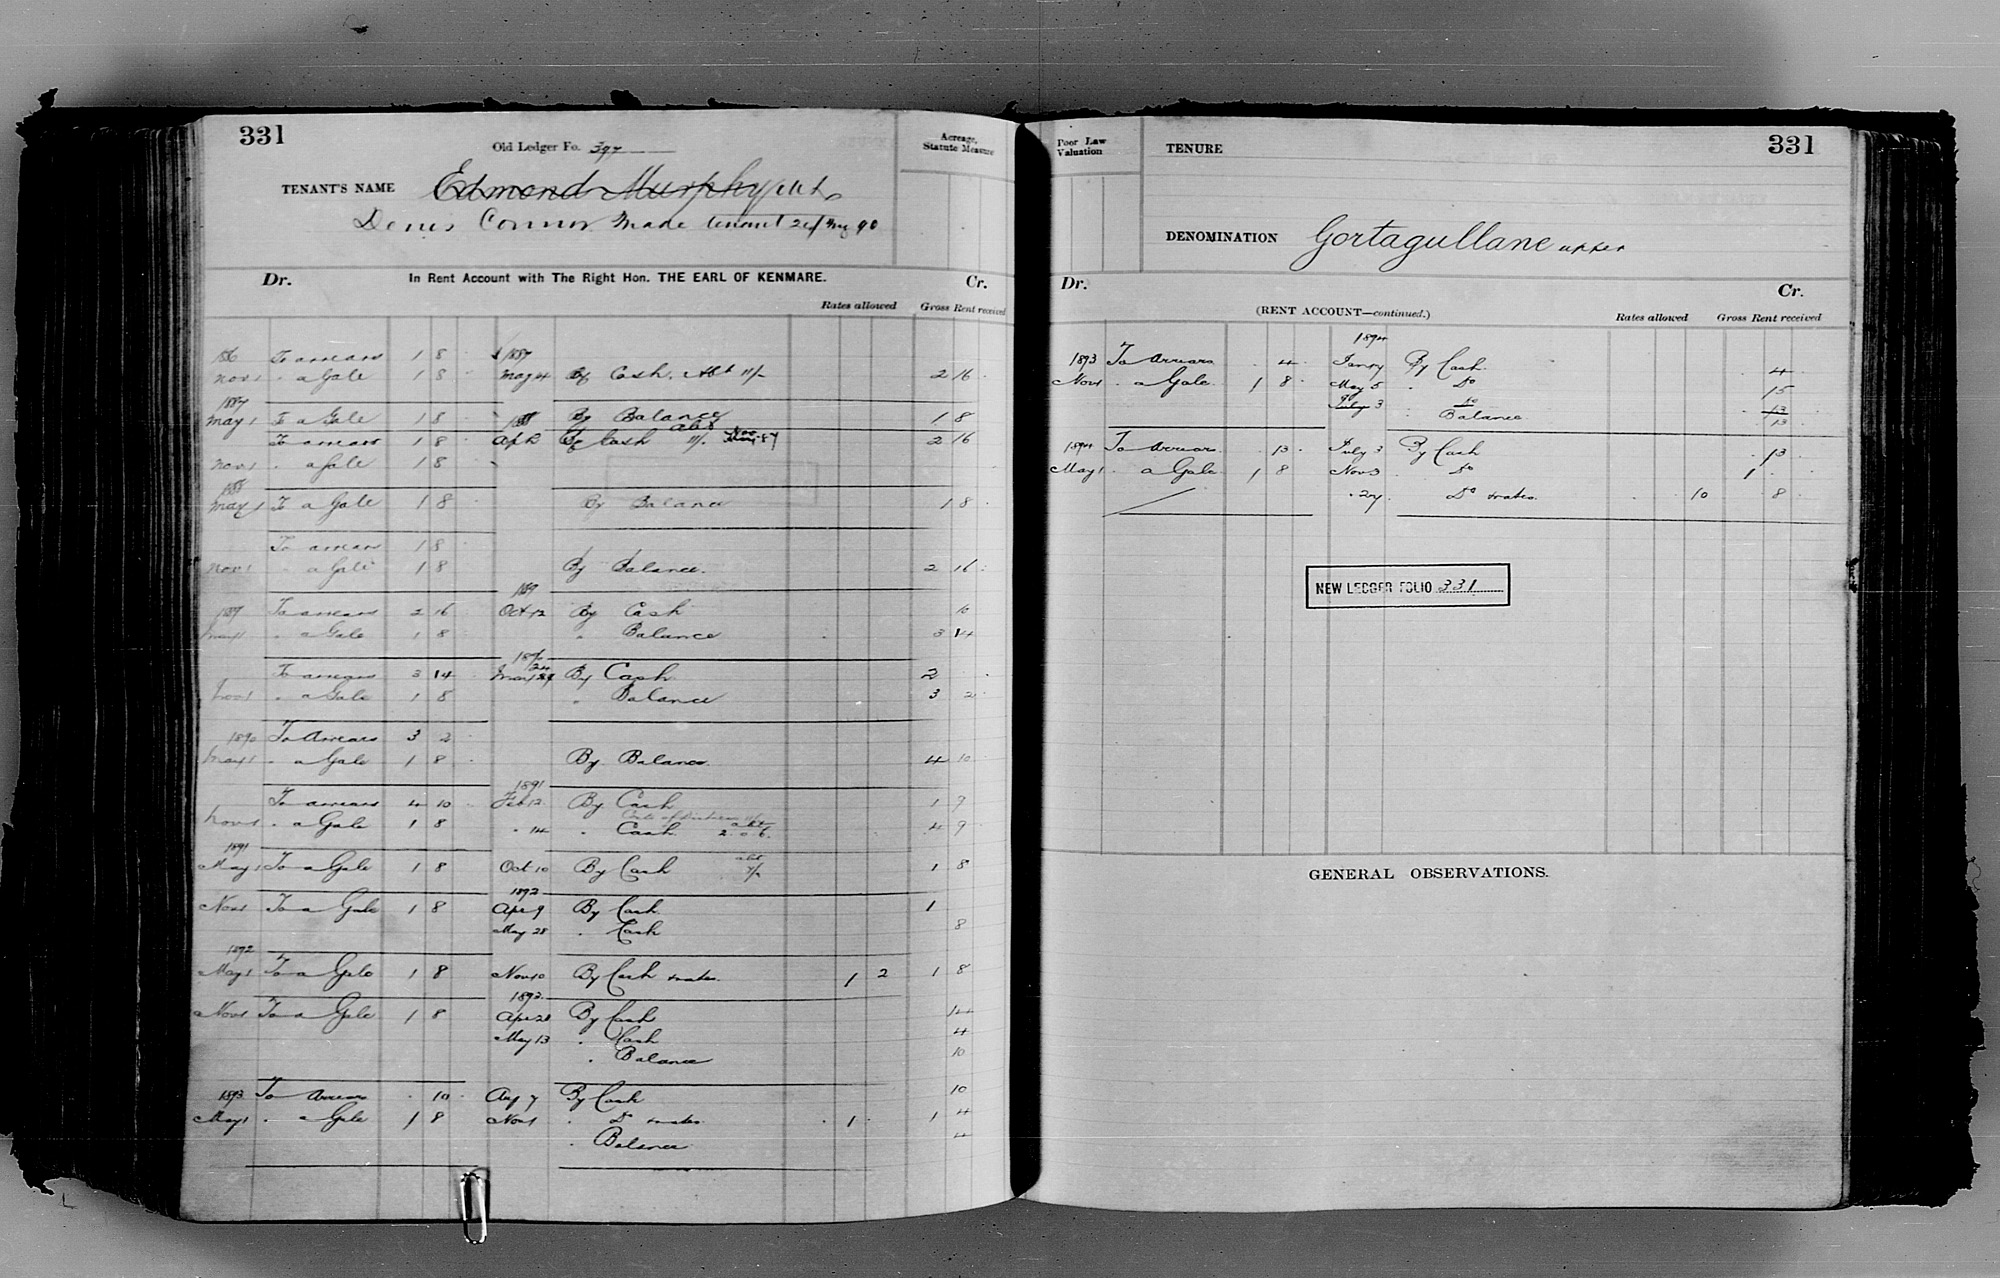 331
Old Ledger Fo. 397
Acreage, Statute Measure
TENANT'S NAME Edmond Murphy
Denis Connor Made tenant 90
Dr. In Rent Account with The Right Hon. THE EARL OF KENMARE. Cr.
Rates allowed Gross Rent received
1886 To arrears 1 8 1887
Nov 1 " a Gale 1 8 May 4 By Cash. Abt 11/- 2 16
1887
May 1 To a Gale 1 8 1888 By Balance 1 8
To arrears 1 8 Apl 2 By Cash abt 11/- Nov. 87 2 16
Nov 1 " a Gale 1 8
1888
May 1 To a Gale 1 8 By Balance 1 8
To arrears 1 8
Nov 1 " a Gale 1 8 By Balance. 2 16
1889
1889 To arrears 2 16 Oct 12 By Cash 10
May 1 " a Gale 1 8 " Balance 3 14
1890
To arrears 3 14 May 24 By Cash 2
Nov 1 " a Gale 1 8 " Balance 3 2
1890 To Arrears 3 2
May 1 " a Gale 1 8 By Balance 4 10
1891
To arrears 4 10 Feb 12 By Cash 1 9
Nov 1 " a Gale 1 8 " 14 " Cash 2.0.6. 4 9
1891
May 1 To a Gale 1 8 Oct 10 By Cash abt 7/- 1 8
1892
Nov 1 To a Gale 1 8 Apl 9 By Cash 1
May 28 " Cash 8
1892
May 1 To a Gale 1 8 Nov 10 By Cash & rates. 1 2 1 8
1893
Nov 1 To a Gale 1 8 Apl 28 By Cash 14
May 13 " Cash 4
" Balance 10
1893 To Arrears 10 Aug 7 By Cash 10
May 1 " a Gale 1 8 Nov 1 " Do & rates 1 1 4
" Balance 4
Poor Law Valuation
TENURE
331
DENOMINATION Gortagullane upper
Dr. Cr.
(RENT ACCOUNT—continued.)
Rates allowed Gross Rent received
1894
1893 To Arrears 4 Janry By Cash 4
Nov 1 " a Gale 1 8 May 5 " do 15
July 3 " do 13
Balance 13
1894 To Arrears 13 July 3 By Cash 13
May 1 " a Gale 1 8 Nov 3 " do 1
" 27 Do & rates. 10 8
NEW LEDGER FOLIO 331
GENERAL OBSERVATIONS.